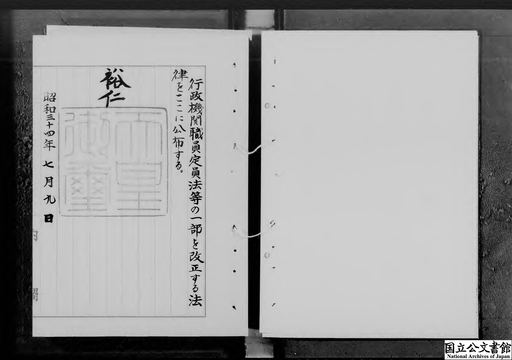 行政機関職員定員法等の一部を改正する法
律をここに公布する。
裕仁
天皇
御璽
昭和三十四年七月九日
内閣
国立公文書館
National Archives of Japan